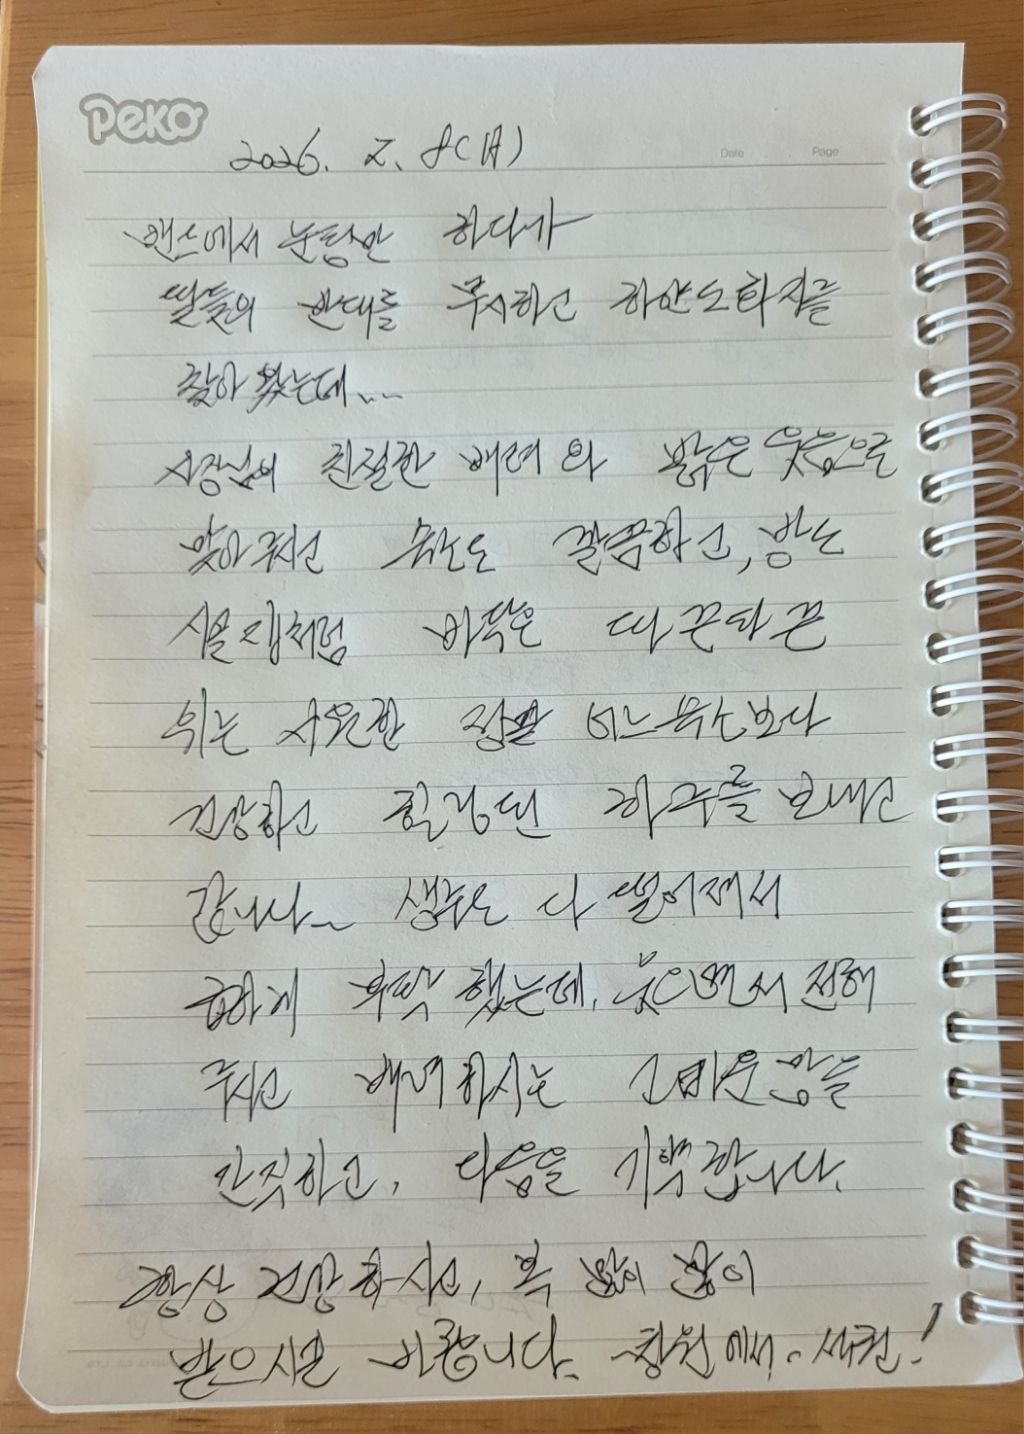 Peko
Date Page
2026. 2. 8(日)
맨스에서 눈팅만 하다가
딸들의 반대를 무시하고 하얀도화지를
찾아 왔는데...
사장님의 친절한 배려와 밝은 웃음으로
맞아주시고 숙소도 깔끔하고, 방도
시몬스침처럼 바닥은 따끈따끈
위는 시원한 정말 어느 숙소보다
건강하고 힐링된 하루를 보내고
갑니다~ 생수도 다 떨어져서
급하게 부탁 했는데, 웃으면서 전해
주시고 배려하시는 고마운 맘을
간직하고, 다음을 기약합니다.
항상 건강하시고, 복 많이 많이
받으시길 바랍니다. 창원에서.